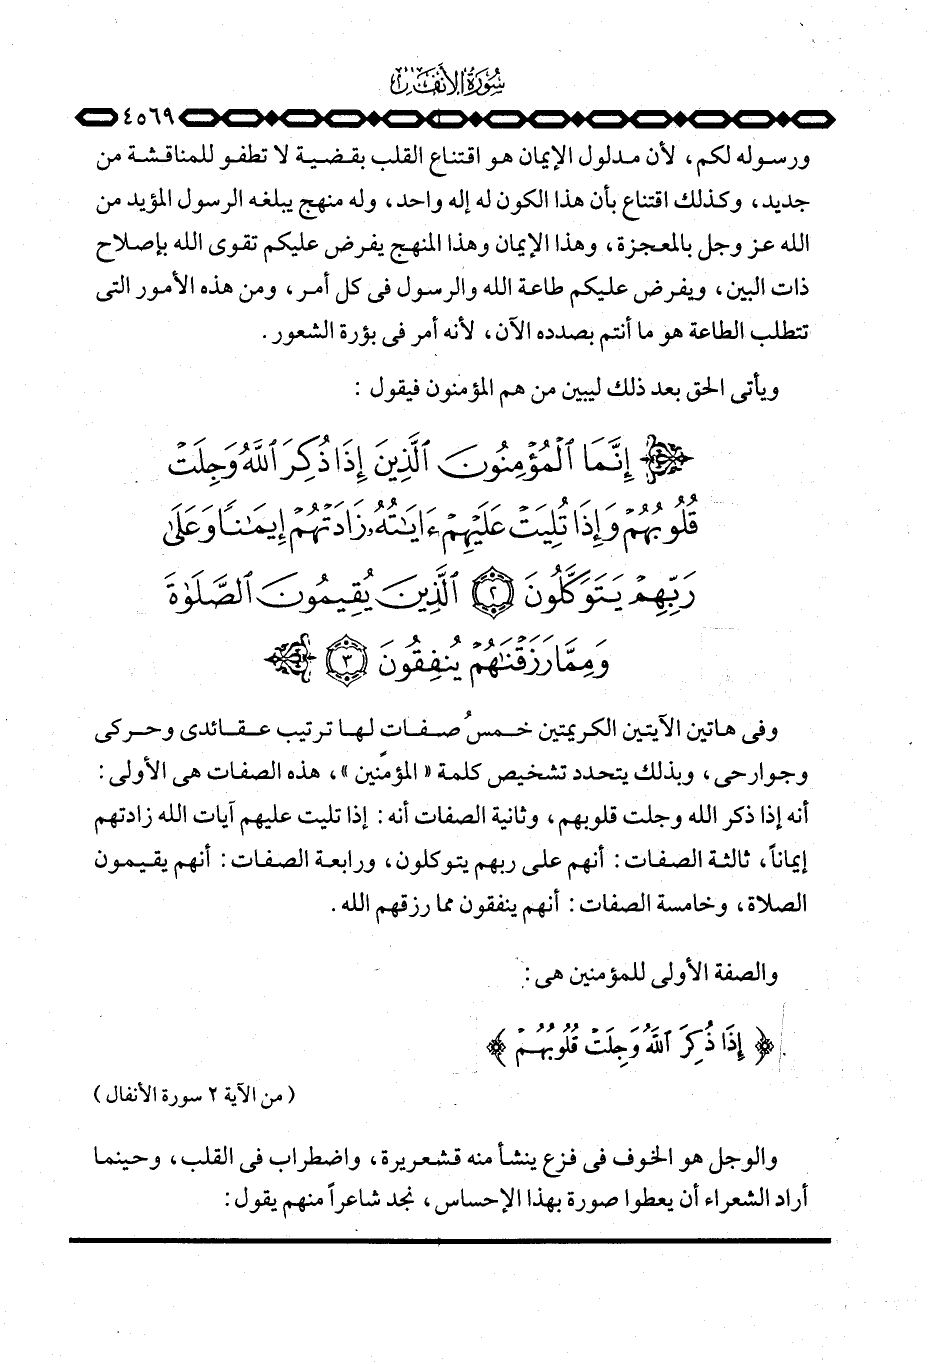 سورة الأنفال
٤٥٦٩
ورسوله لكم، لأن مدلول الإيمان هو اقتناع القلب بقضية لا تطفو للمناقشة من
جديد، وكذلك اقتناع بأن هذا الكون له إله واحد، وله منهج يبلغه الرسول المؤيد من
الله عز وجل بالمعجزة، وهذا الإيمان وهذا المنهج يفرض عليكم تقوى الله بإصلاح
ذات البين، ويفرض عليكم طاعة الله والرسول فى كل أمر، ومن هذه الأمور التى
تتطلب الطاعة هو ما أنتم بصدده الآن، لأنه أمر فى بؤرة الشعور.
ويأتى الحق بعد ذلك ليبين من هم المؤمنون فيقول :
﴿ إِنَّمَا ٱلْمُؤْمِنُونَ ٱلَّذِينَ إِذَا ذُكِرَ ٱللَّهُ وَجِلَتْ
قُلُوبُهُمْ وَإِذَا تُلِيَتْ عَلَيْهِمْ ءَايَٰتُهُۥ زَادَتْهُمْ إِيمَٰنًا وَعَلَىٰ
رَبِّهِمْ يَتَوَكَّلُونَ ٢ ٱلَّذِينَ يُقِيمُونَ ٱلصَّلَوٰةَ
وَمِمَّا رَزَقْنَٰهُمْ يُنفِقُونَ ٣ ﴾
وفى هاتين الآيتين الكريمتين خمسُ صفات لها ترتيب عقائدى وحركى
وجوارحى، وبذلك يتحدد تشخيص كلمة « المؤمنين »، هذه الصفات هى الأولى:
أنه إذا ذكر الله وجلت قلوبهم، وثانية الصفات أنه : إذا تليت عليهم آيات الله زادتهم
إيماناً، ثالثة الصفات : أنهم على ربهم يتوكلون، ورابعة الصفات : أنهم يقيمون
الصلاة، وخامسة الصفات : أنهم ينفقون مما رزقهم الله.
والصفة الأولى للمؤمنين هى:
﴿ إِذَا ذُكِرَ ٱللَّهُ وَجِلَتْ قُلُوبُهُمْ ﴾
( من الآية ٢ سورة الأنفال )
والوجل هو الخوف فى فزع ينشأ منه قشعريرة، واضطراب فى القلب، وحينما
أراد الشعراء أن يعطوا صورة بهذا الإحساس، نجد شاعراً منهم يقول :